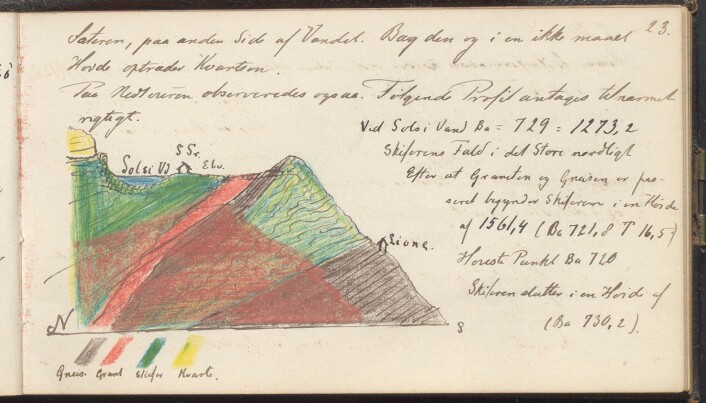 23.
Sateren, paa anden Side af Vandet. Bag den og i en ikke maalt
Høide optræder Kvartsen.
Paa Nedtouren observeredes ogsaa. Følgende Profil antages tilnærmet
rigtigt.
Ved Solsi Vand Ba = 729 = 1273,2
Skiferens Fald i det Store nordligt
Efter at Graniten og Gneisen er pas-
seret begynder Skiferen i en Høide
af 1561,4 (Ba 721,8 T 16,5)
Høieste Punkt Ba 720
Skiferen slutter i en Høide af
(Ba 730,2).
Solsi Vd
SSr.
Elv.
N
S
Gneis. Granit Skifer Kvarts.